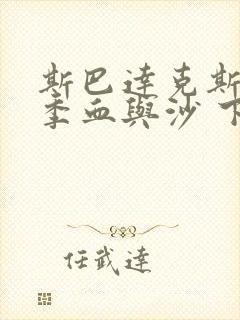 斯巴達克斯
季血與沙 下
任武達